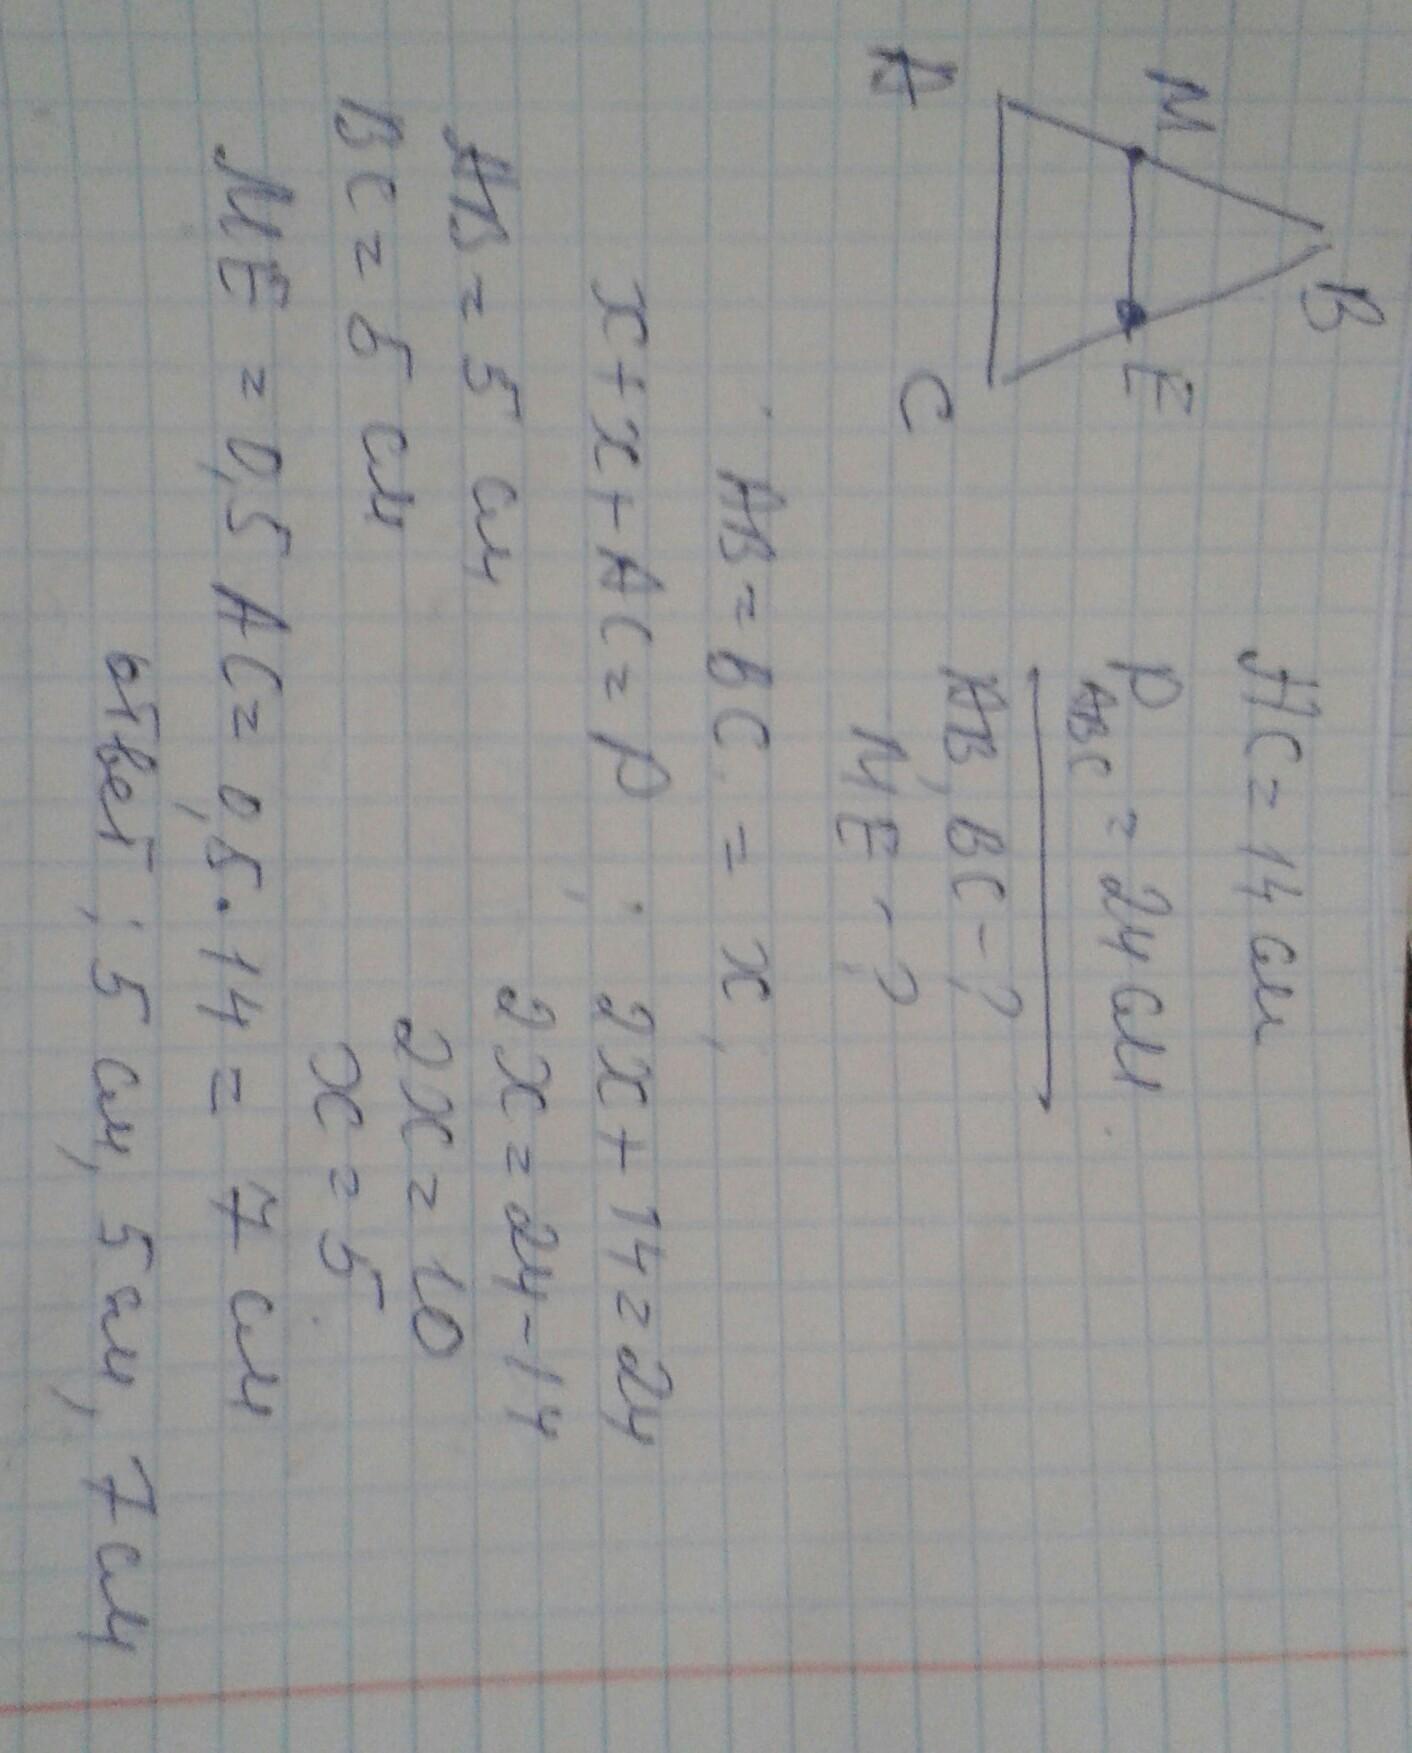 B
M
E
A
C
AC = 14 см
P ABC = 24 см
AB, BC - ?
ME - ?
AB = BC = x,
x + x + AC = P ; 2x + 14 = 24
2x = 24 - 14
AB = 5 см
2x = 10
BC = 5 см
x = 5
ME = 0,5 AC = 0,5 · 14 = 7 см
ответ : 5 см, 5 см, 7 см